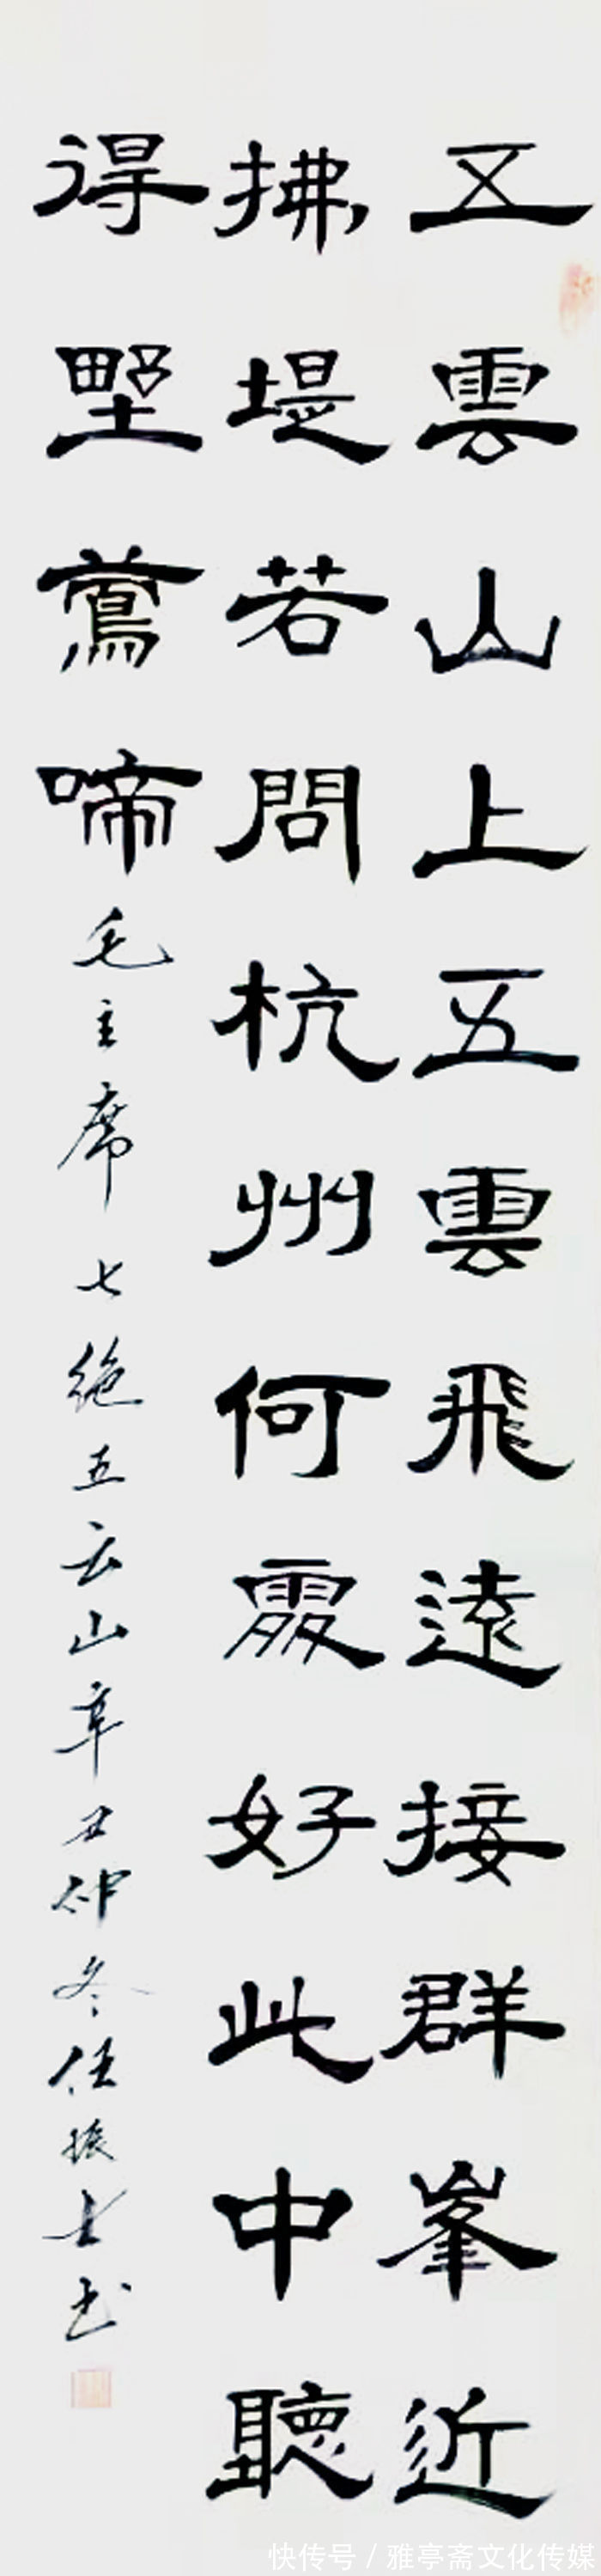 五雲山上五雲飛遠接群峯近
拂堤若問杭州何處好此中聽
得野鶯啼
毛主席七绝五云山辛丑仲冬任振士书
快传号/雅亭斋文化传媒